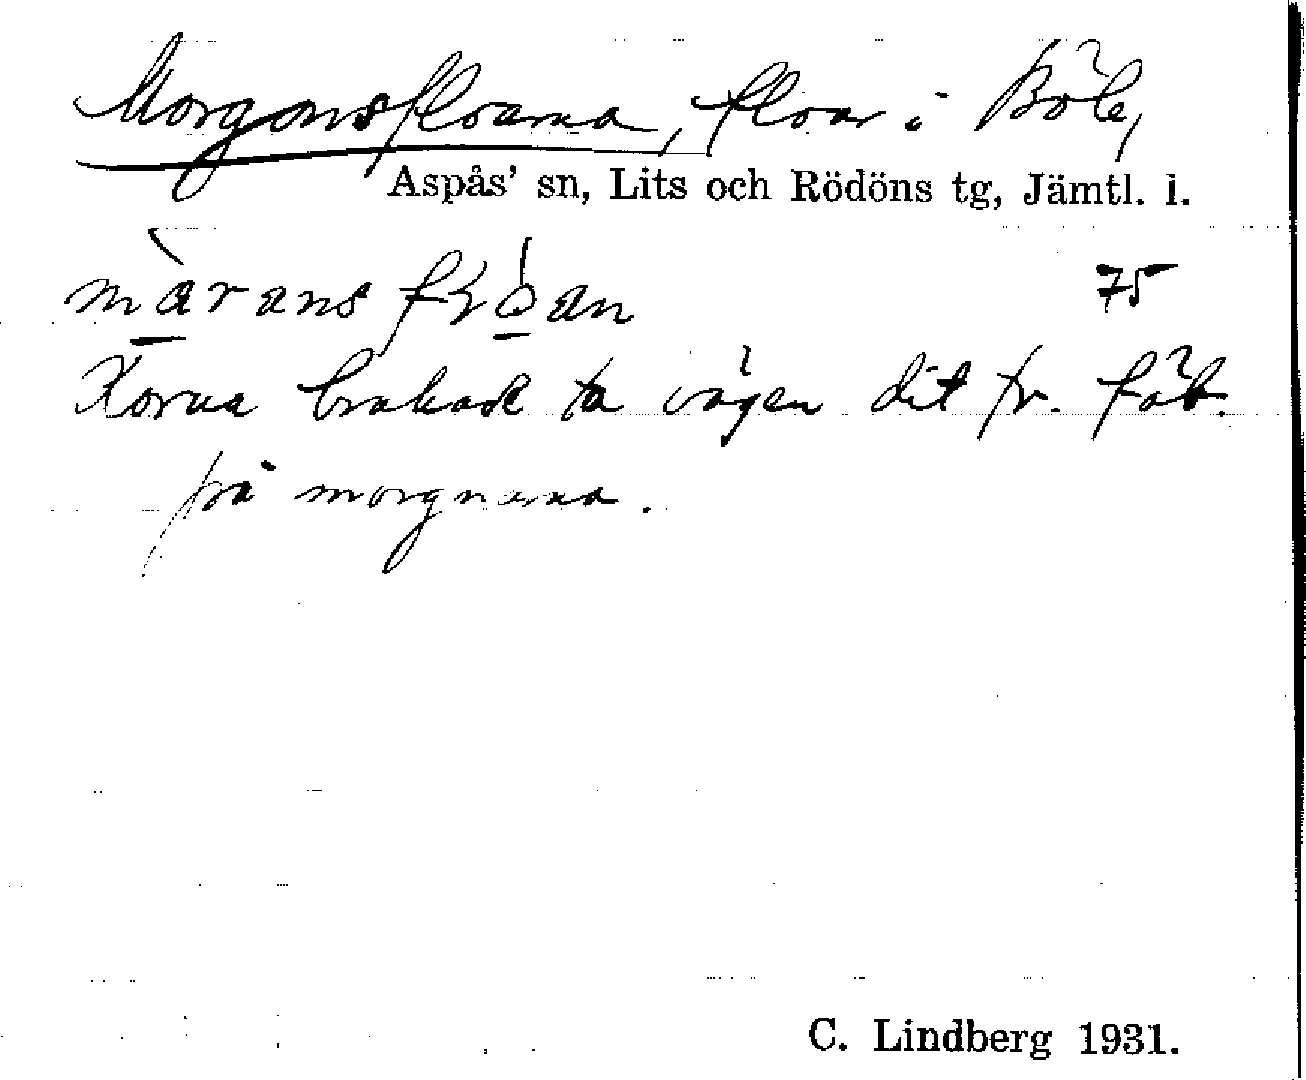 Morgonsfloarna, floar i Böle,
Aspås' sn, Lits och Rödöns tg, Jämtl. l.
mà̱rans 75
Korna brukade ta vägen dit fr. fäb.
på morgnarna.
C. Lindberg 1931.